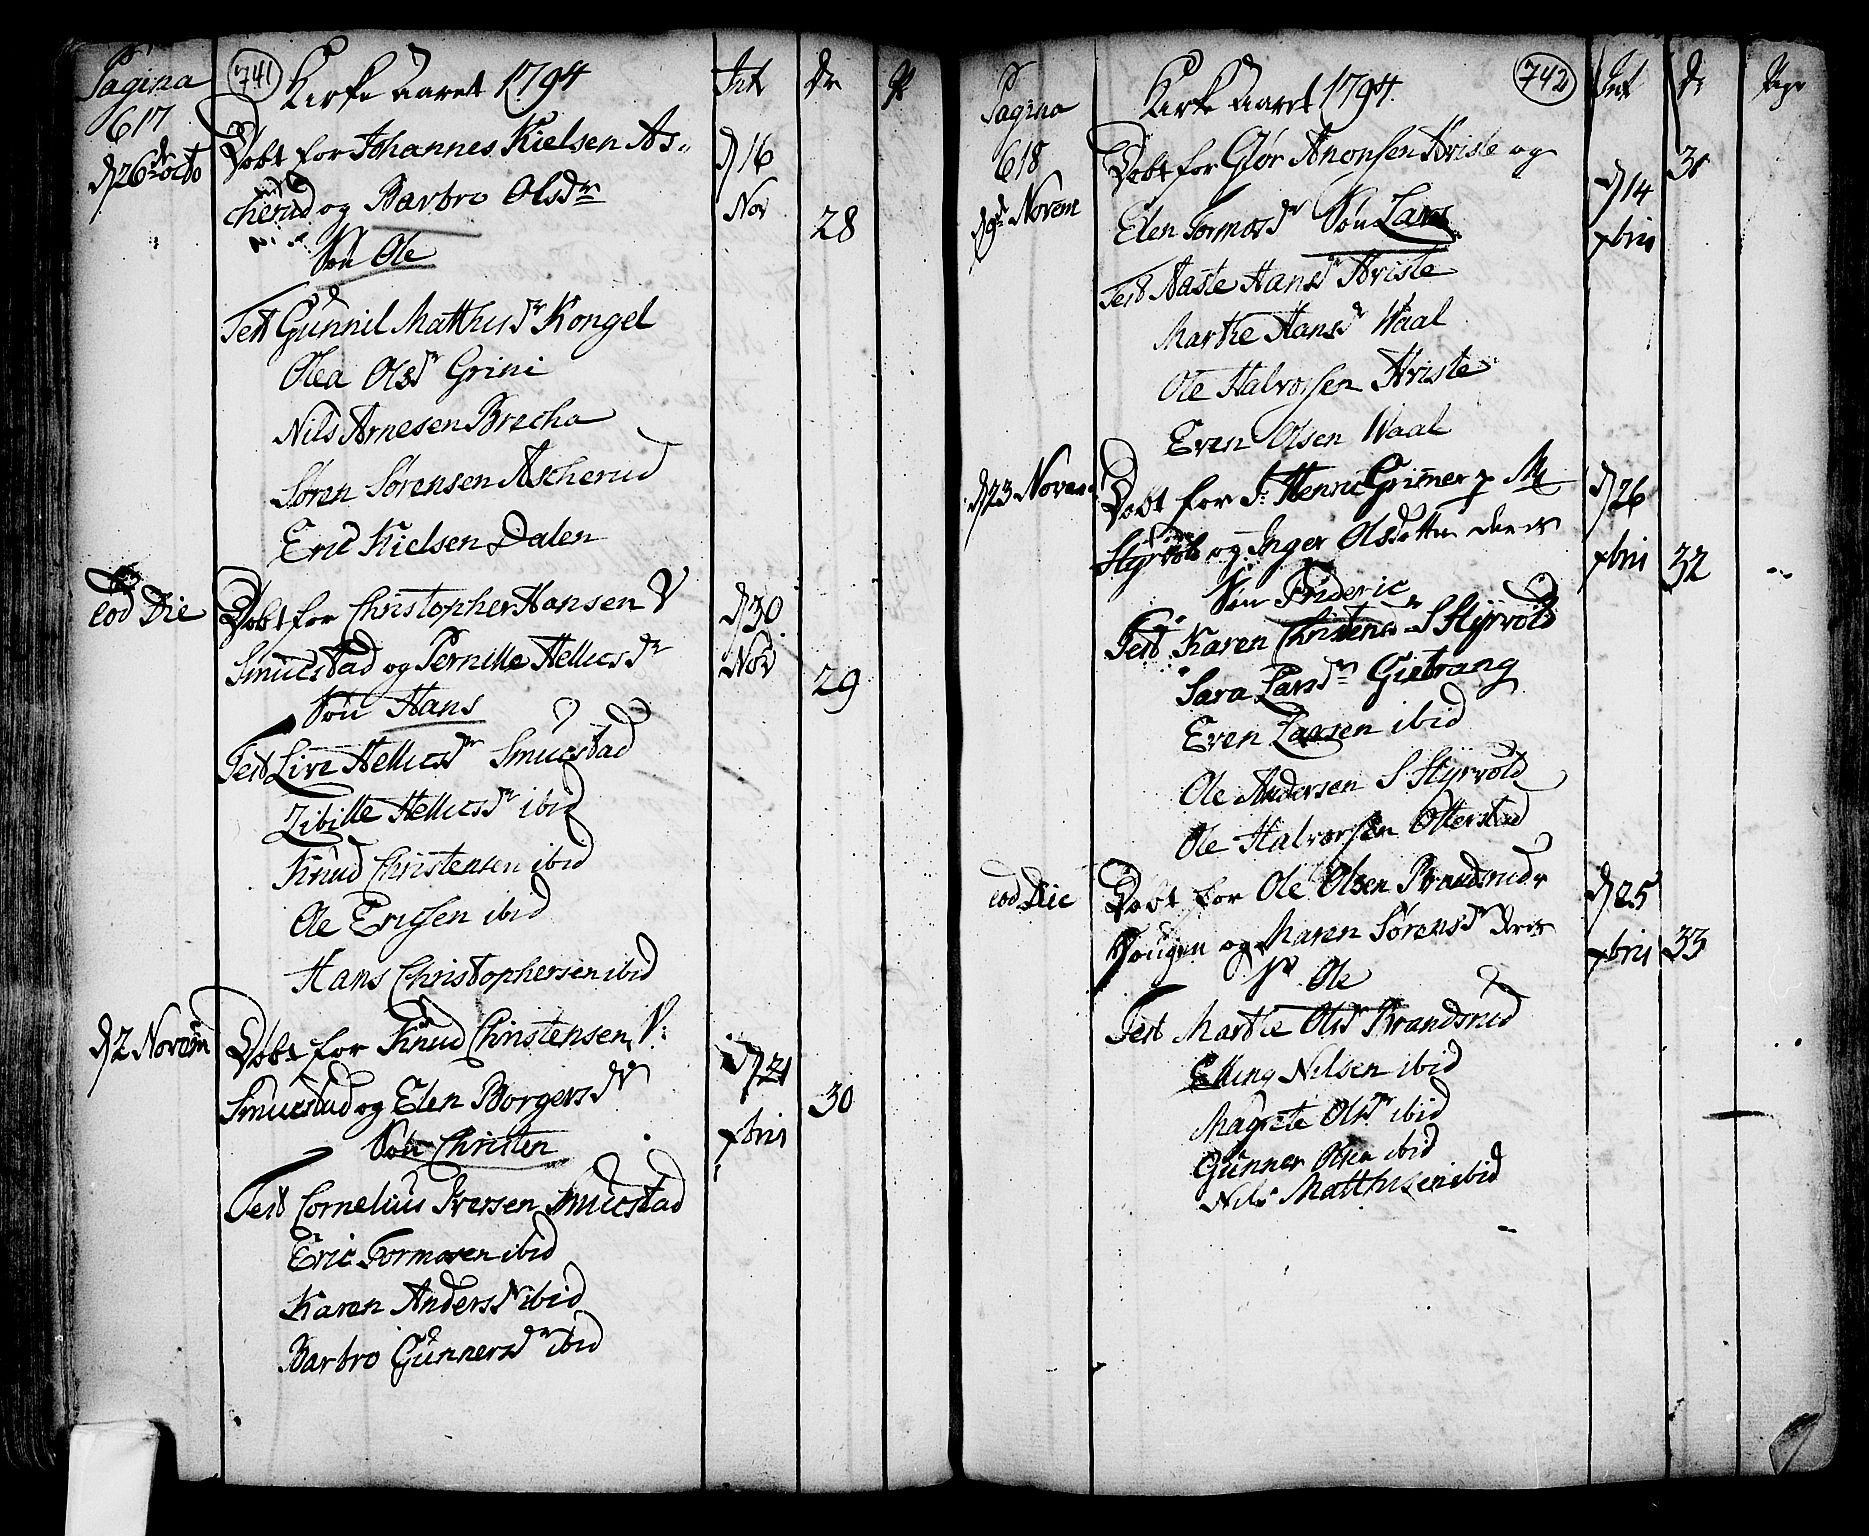 Pagina
617
741
Kirke Aaret 1794
Int
Dr
d 26de octo
Døbt for Johannes Kielsen As„
d 16
Nov
cherud og Barbro Olsdr
28
Søn Ole
Test Gunnil Matthisdr Kongel
Olea Olsdr Grini
Nils Arnesen Brecha
Søren Sørensen Ascherud
Eric Kielsen Dalen
eod Die
Døbt for Christopher Hansen V
d 30
Nov
Smuestad og Pernille Helliesdr
29
Søn Hans
Test Live Helliesdr Smuestad
Zibille Helliesdr ibid
Knud Christensen ibid
Ole Ericsen ibid
Hans Christophersen ibid
d 2 Novem
Døbt for Knud Christensen V:
d 21
xbris
Smuestad og Elen Borgersdr
30
Søn Christen
Test Cornelius Iversen Smuestad
Eric Tormosen ibid
Karen Andersdr ibid
Barbro Gunnersdr ibid
Pagina
618
Kirke Aaret 1794.
742
Int
Dr
d 9de Novem
Døbt for Glør Anonsen Hviste og
d 14
xbris
31
Elen Tormosdr Søn Lars
Test Aaste Hansdr Hviste
Marthe Hansdr Waal
Ole Halvorsen Hviste
Even Olsen Waal
d 23 Novem
Døbt for S: Henric Grimer p. M
d 26
xbris
Styrvold og Inger Olsdatter
32
Søn Frideric
Test Karen Christensdr S Styrvold
Sara Larsdr Gietrang
Even Larsen ibid
Ole Andersen S Styrvold
Ole Halvorsen Olterstad
eod Die
Døbt for Ole Olsen Brandsrud
d 25
xbris
Hougen og Maren Sørensdr
33
Ole
Test Marthe Olsdr Brandsrud
Elling Nilsen ibid
Magrete Olsdr ibid
Gunner Olsen ibid
Nils Matthisen ibid